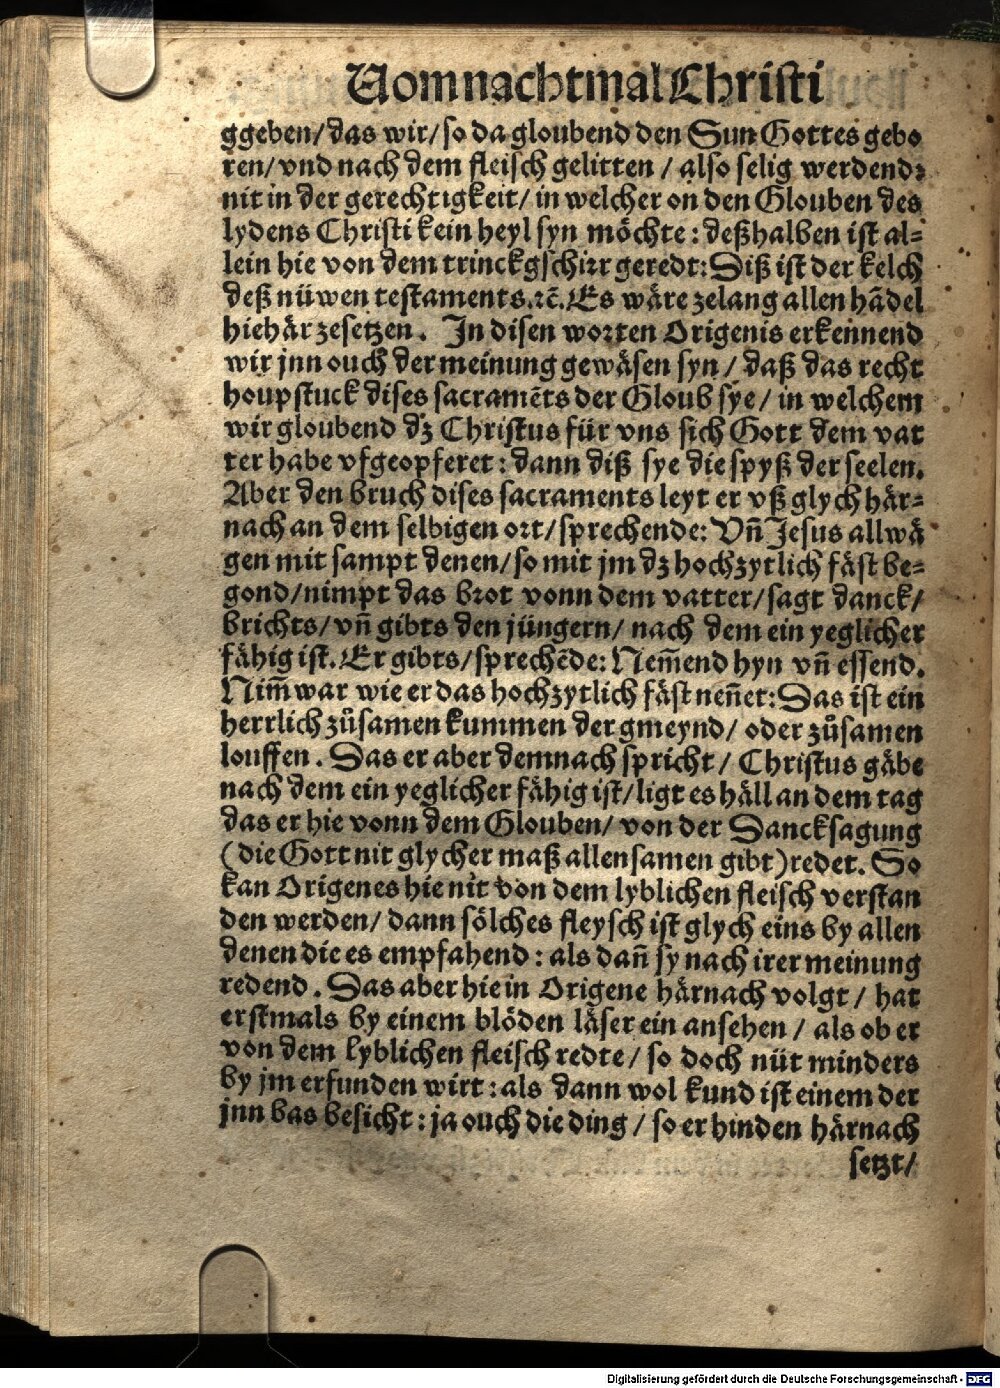 Vom nachtmal Christi
ggeben/ das wir/ so da gloubend den Sun Gottes gebo
ren/ vnd nach dem fleisch gelitten / also selig werdend:
nit in der gerechtigkeit/ in welcher on den Glouben des
lydens Christi kein heyl syn möchte: deßhalben ist al=
lein hie von dem trinckgschirr geredt: Diß ist der kelch
deß nüwen testaments. ꝛc̄. Es wäre zelang allen hādel
hiehär zesetzen. In disen worten Origenis erkennend
wir jnn ouch der meinung gewäsen syn / daß das recht
houpstuck dises sacramēts der Gloub sye/ in welchem
wir gloubend dz Christus für vns sich Gott dem vat
ter habe vfgeopferet: dann diß sye die spyß der seelen.
Aber den bruch dises sacraments leyt er vß glych här=
nach an dem selbigen ort/ sprechende: Vñ Jesus allwä
gen mit sampt denen/ so mit jm dz hochzytlich fäst be=
gond/ nimpt das brot vonn dem vatter/ sagt danck/
brichts/ vñ gibts den jüngern/ nach dem ein yeglicher
fähig ist. Er gibts/ sprechēde: Nem̄end hyn vñ essend.
Nim̄ war wie er das hochzytlich fäst nen̄et: Das ist ein
herrlich zůsamen kummen der gmeynd/ oder zůsamen
louffen. Das er aber demnach spricht/ Christus gäbe
nach dem ein yeglicher fähig ist/ ligt es häll an dem tag
das er hie vonn dem Glouben/ von der Dancksagung
(die Gott nit glycher maß allensamen gibt) redet. So
kan Origenes hie nit von dem lyblichen fleisch verstan
den werden/ dann sölches fleysch ist glych eins by allen
denen die es empfahend: als dañ sy nach irer meinung
redend. Das aber hie in Origene härnach volgt/ hat
erstmals by einem blöden läser ein ansehen/ als ob er
von dem lyblichen fleisch redte/ so doch nüt minders
by jm erfunden wirt: als dann wol kund ist einem der
jnn bas besicht: ja ouch die ding/ so er hinden härnach
setzt/
Digitalisierung gefördert durch die Deutsche Forschungsgemeinschaft - DFG